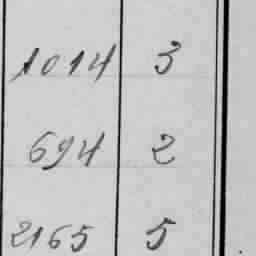 1014 3
694 2
2165 5